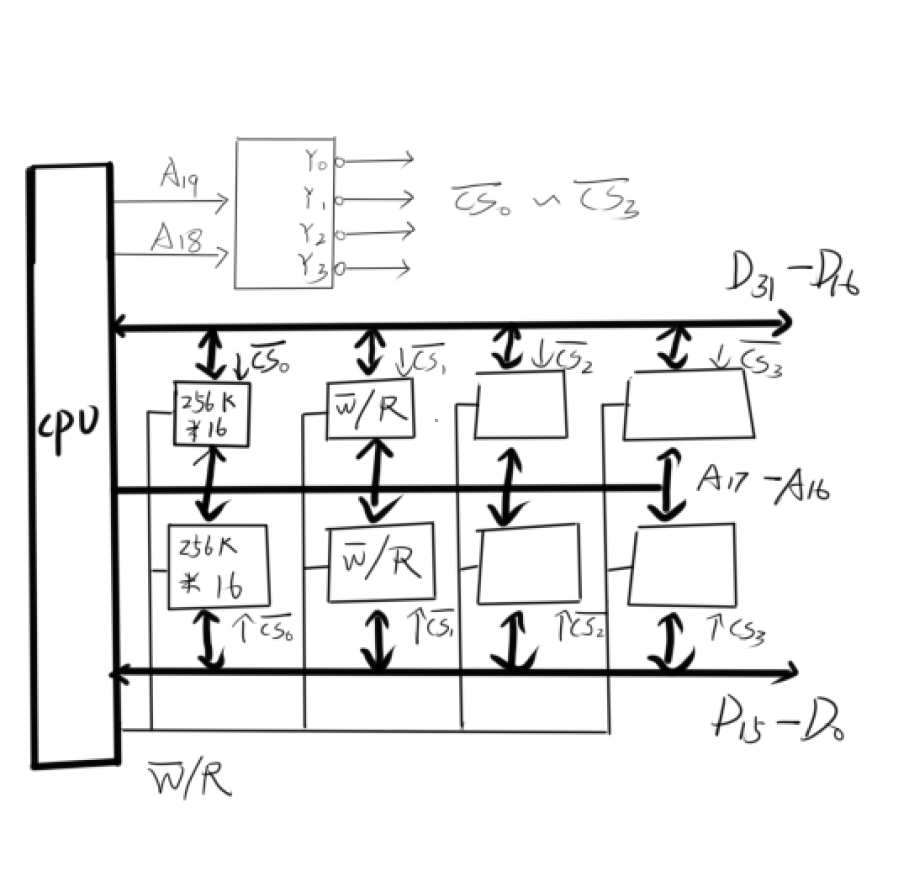 A19
A18
Y0
Y1
Y2
Y3
C̅S̅0 ~ C̅S̅3
D31 - D16
C̅S̅0
C̅S̅1
C̅S̅2
C̅S̅3
256K
* 16
W̅/R
CPU
A17 - A16
256K
* 16
W̅/R
C̅S̅0
C̅S̅1
C̅S̅2
CS3
D15 - D0
W̅/R